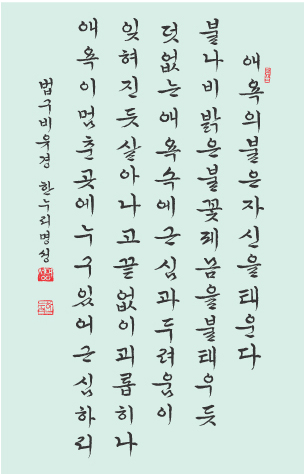 애욕의불은자신을태운다
불나비밝은불꽃제몸을불태우듯
덧없는애욕속에근심과두려움이
잊혀진듯살아나고끝없이괴롭히나
애욕이멈춘곳에누구있어근심하리
법구비유경 한누리명성